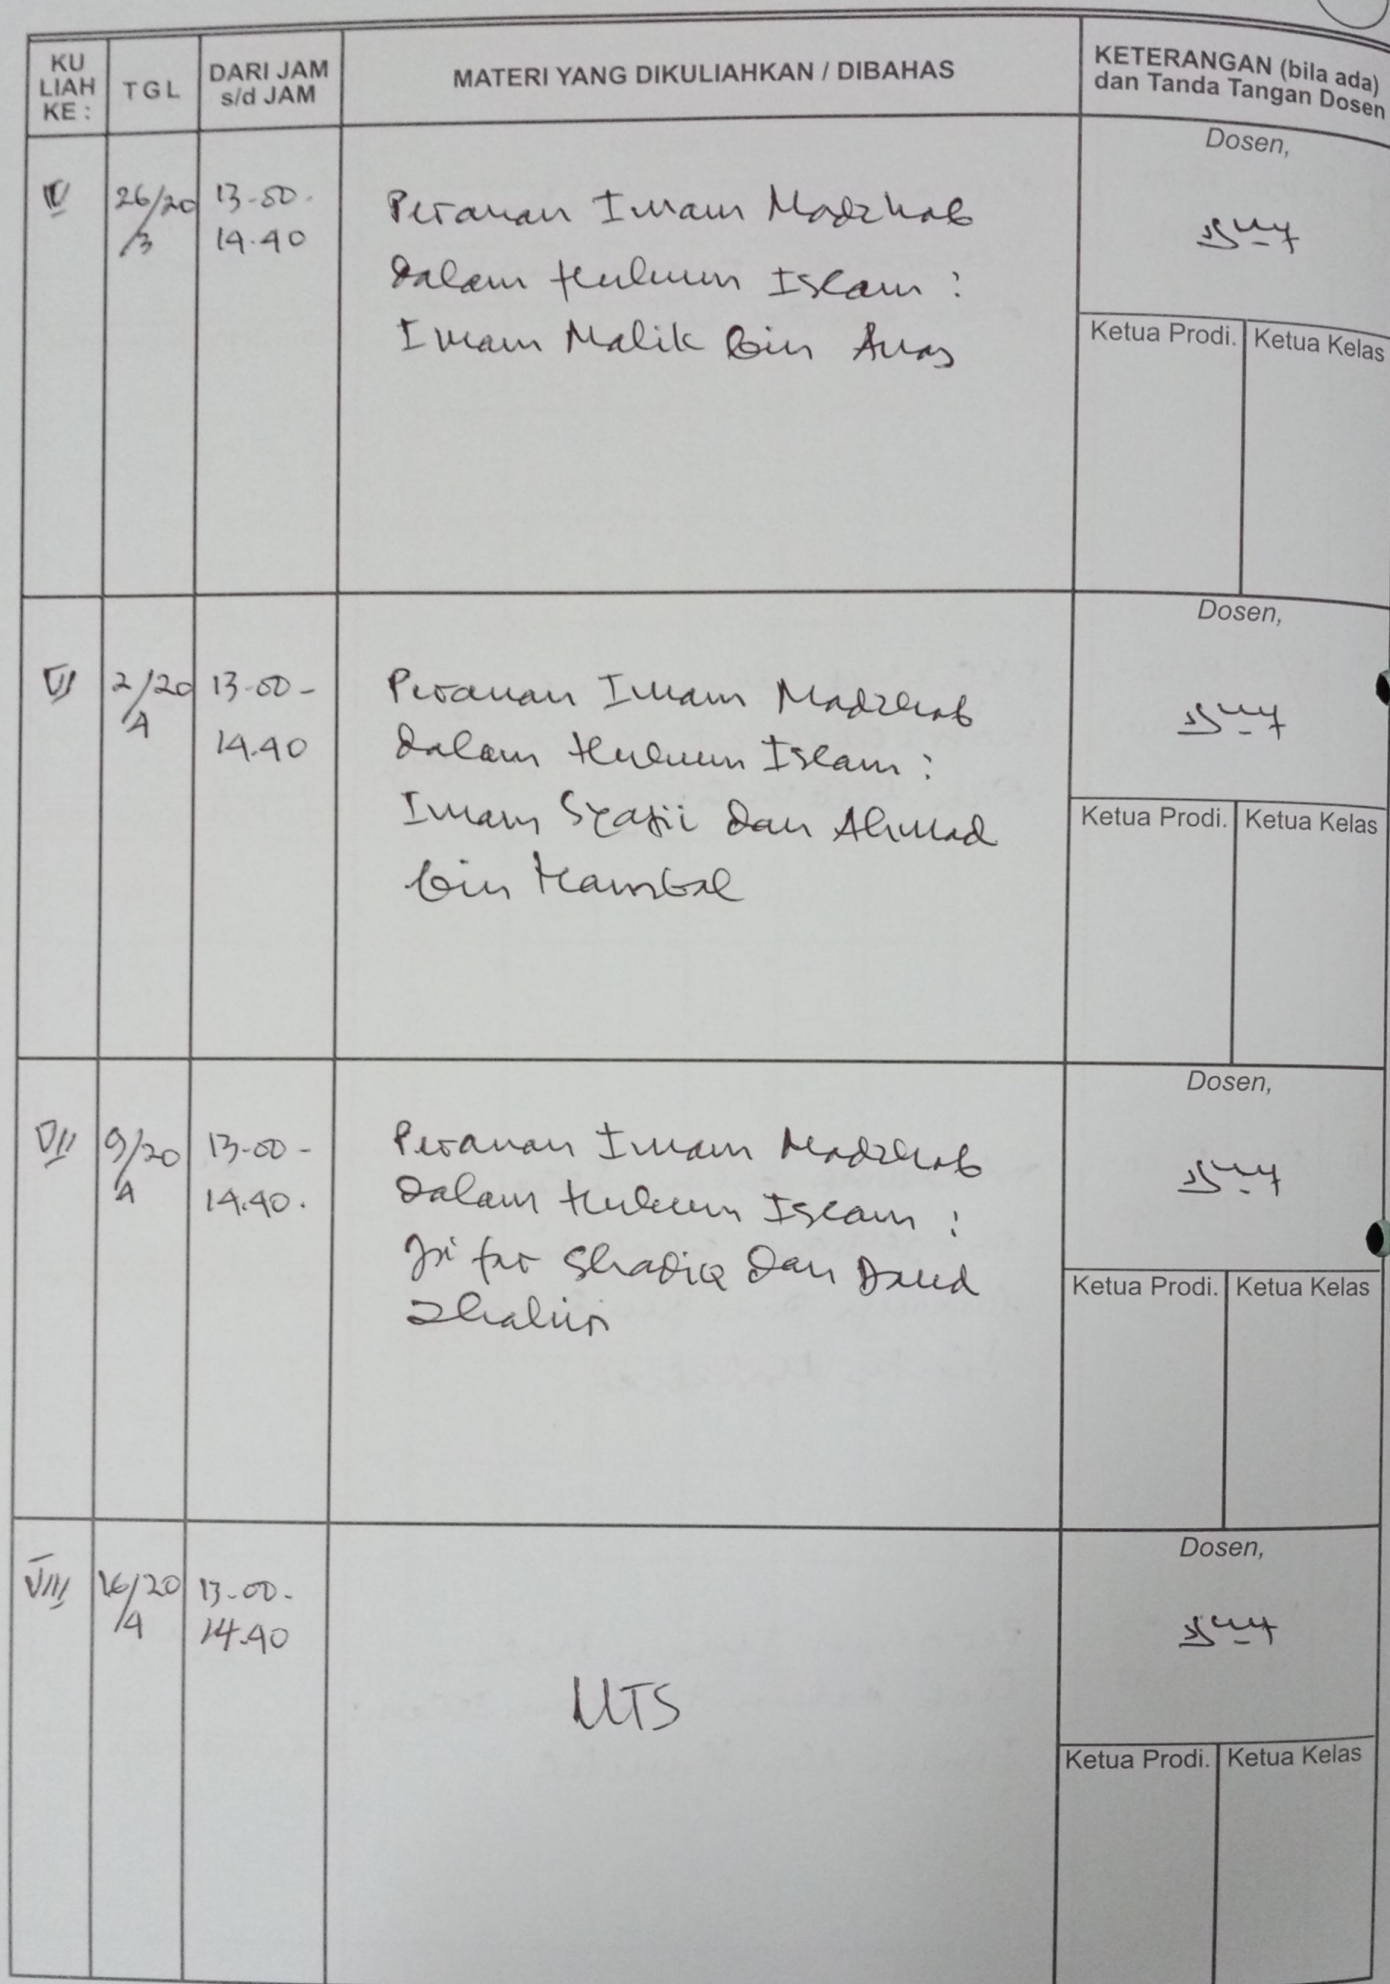 KU
LIAH
KE :
TGL
DARI JAM
s/d JAM
MATERI YANG DIKULIAHKAN / DIBAHAS
KETERANGAN (bila ada)
dan Tanda Tangan Dosen
26/20
/3
13-00-
14.40
Peranan Imam Madzhab
dalam Hukum Islam :
Imam Malik bin Anas
Dosen,
Ketua Prodi.
Ketua Kelas
VI
2/20
/4
13-00-
14.40
Peranan Imam Madzhab
dalam Hukum Islam :
Imam Syafii dan Ahmad
bin Hambal
Dosen,
Ketua Prodi.
Ketua Kelas
VII
9/20
/4
13-00-
14.40.
Peranan Imam Madzhab
dalam Hukum Islam :
Ja'far Shadiq dan Daud
Zhahiri
Dosen,
Ketua Prodi.
Ketua Kelas
VIII
16/20
/4
13-00-
14.40
UTS
Dosen,
Ketua Prodi.
Ketua Kelas